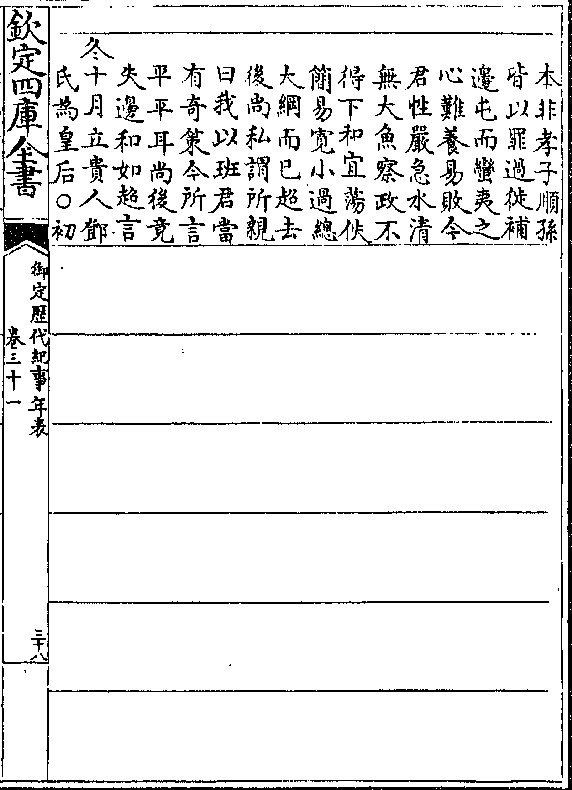 本非孝子順孫
皆以罪過徙補
邊屯而蠻夷之
心難養易敗今
君性嚴急水清
無大魚察政不
得下和宜蕩佚
簡易寛小過總
大綱而已超去
後尚私謂所親
曰我以班君當
有奇策今所言
平平耳尚後竟
失邊和如超言
冬十月立貴人鄧
氏為皇后○初
欽定四庫全書
御定歴代紀事年表
卷三十一
三十八